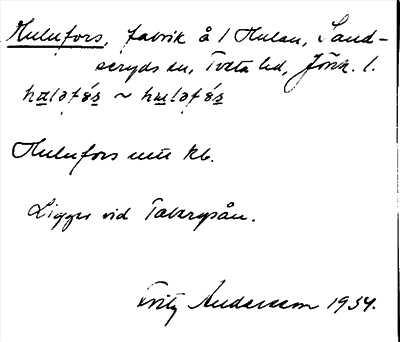 Hulufors, fabrik å 1 Hulan, Sand-
seryds sn, Tveta hd, Jönk. l.
huləfórs ~ huləfórs
Hulufors utt kb.
Ligger vid Tabergsån.
Fritz Andersson 1934.